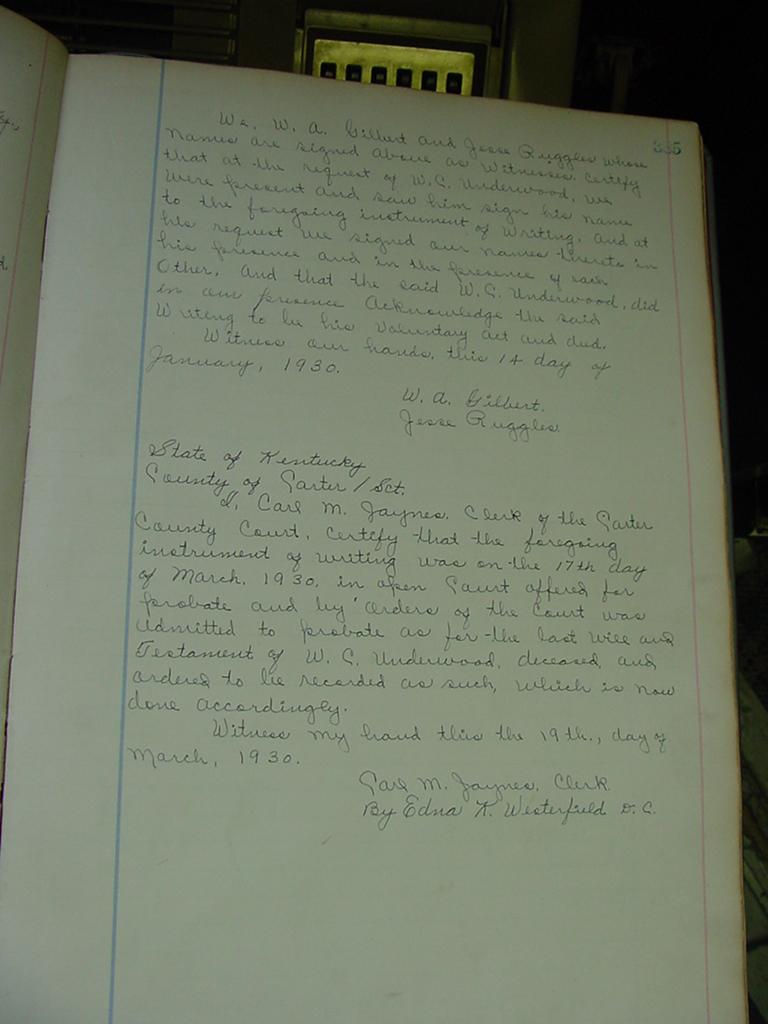 335
We, W. A. Gilbert and Jesse Ruggles whose
names are signed above as Witnesses. Certify
that at the request of W. C. Underwood, we
were present and saw him sign his name
to the foregoing instrument of Writing, and at
his request we signed our names thereto in
his presence and in the presence of each
Other, and that the said W. C. Underwood, did
in our presence Acknowledge the said
Writing to be his Voluntary act and deed.
Witness our hands, this 14 day of
January, 1930.
W. A. Gilbert.
Jesse Ruggles
State of Kentucky
County of Carter / Sct.
I, Carl M. Jaynes. Clerk of the Carter
County Court, Certify that the foregoing
instrument of writing was on the 17th day
of March, 1930, in open Court offered for
probate and by orders of the Court was
admitted to probate as for the last will and
Testament of W. C. Underwood, deceased, and
ordered to be recorded as such, which is now
done accordingly.
Witness my hand this the 19th., day of
March, 1930.
Carl M. Jaynes, Clerk
By Edna K. Westerfield D. C.